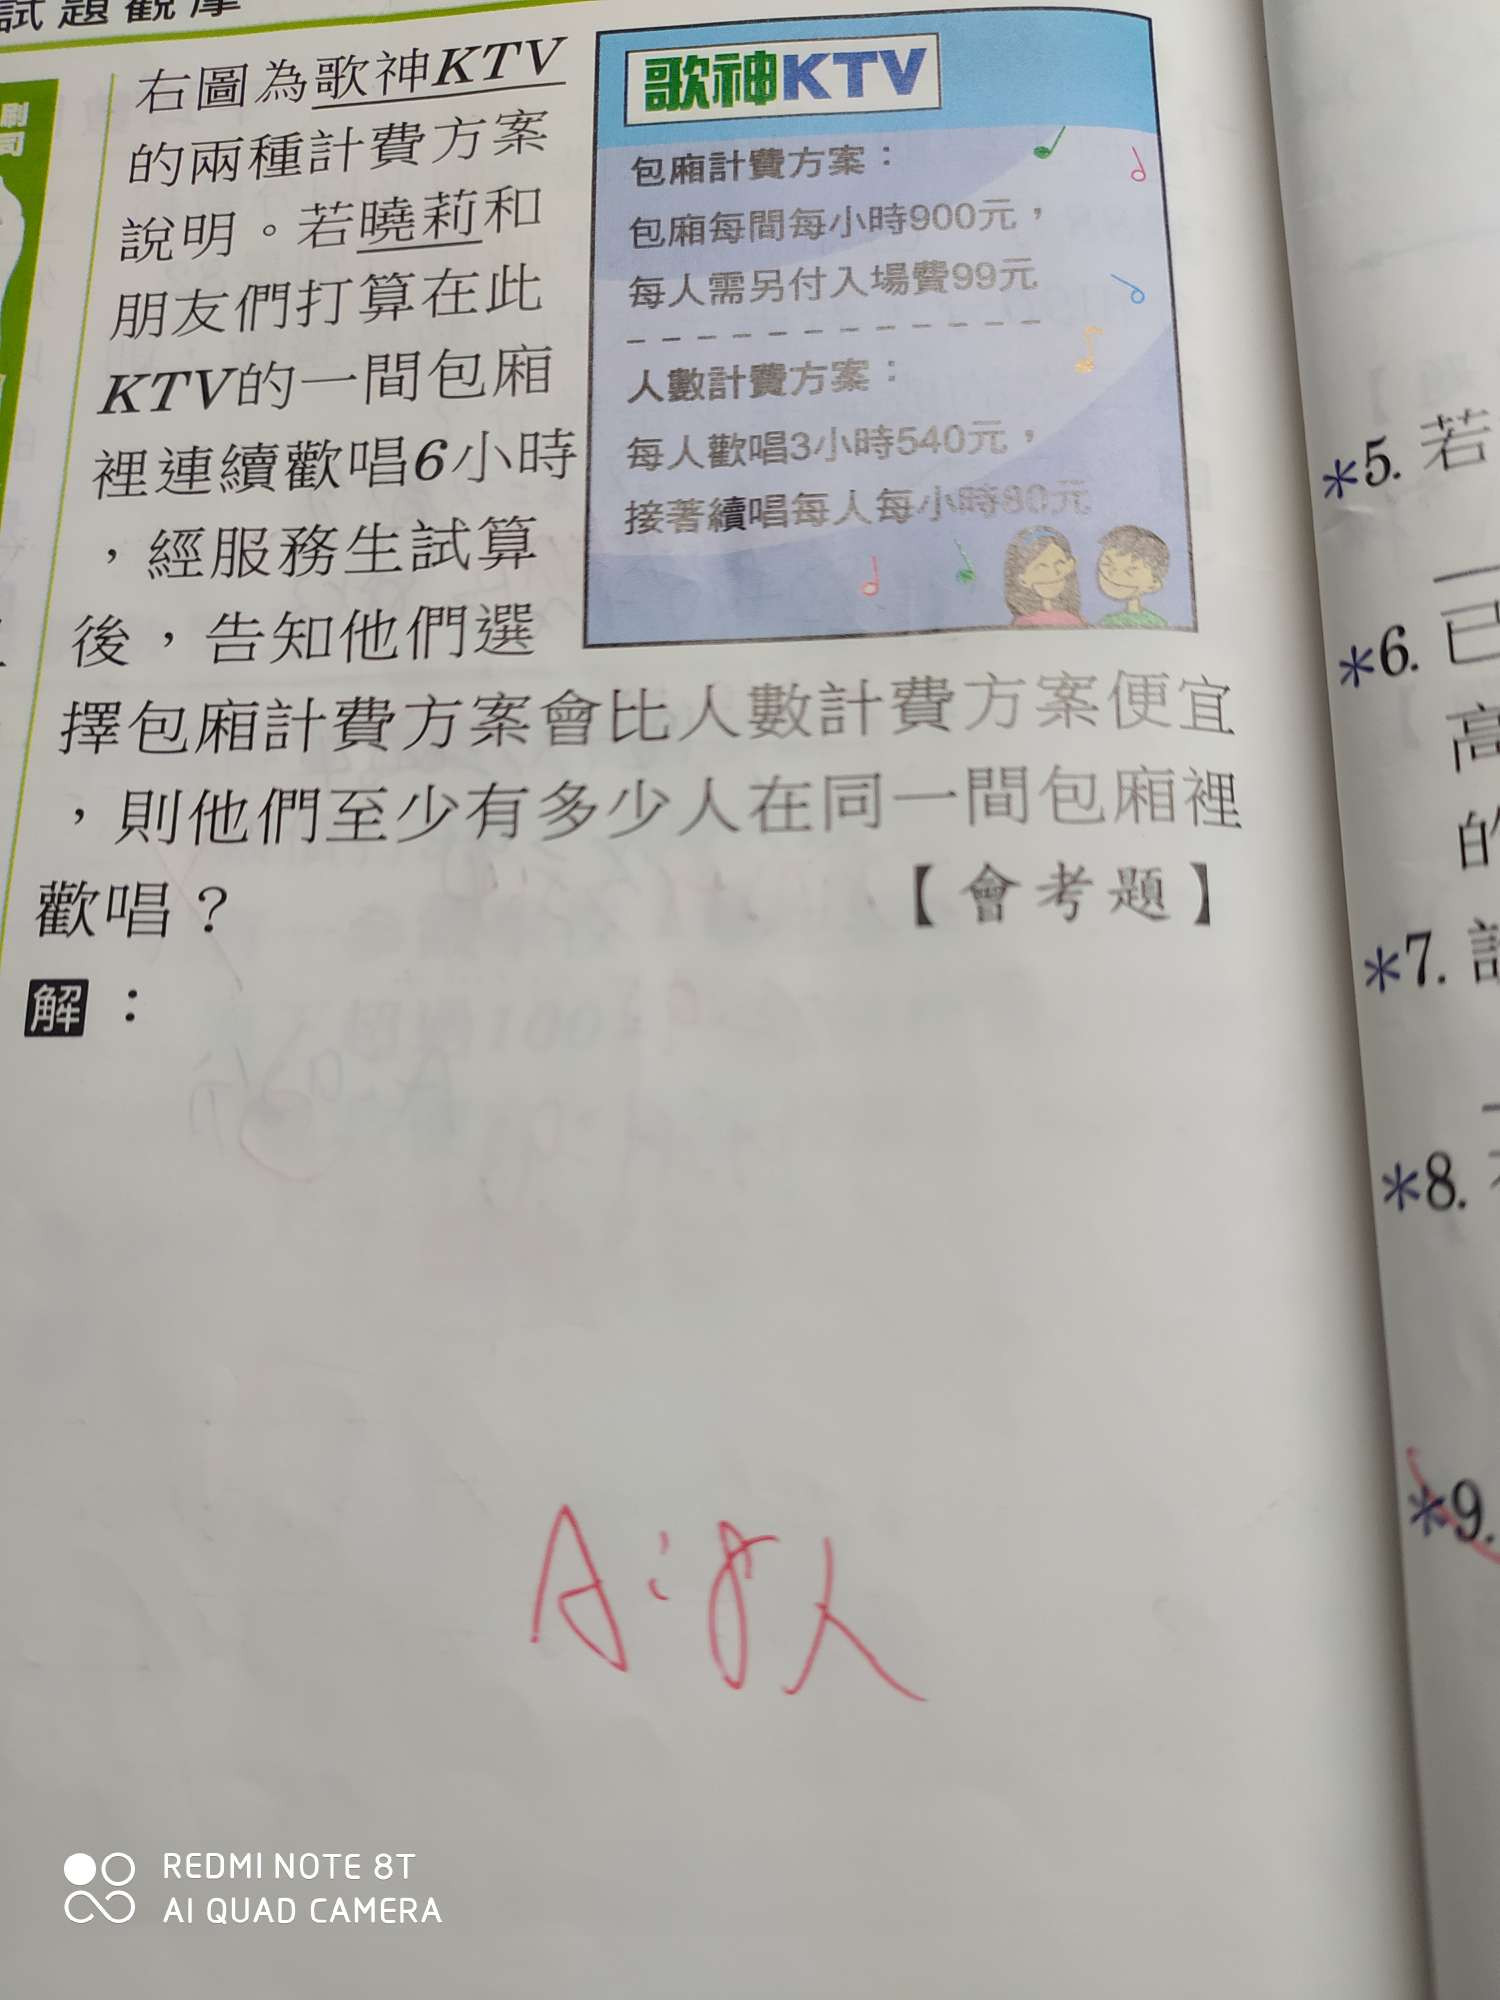 試題觀摩
右圖為歌神KTV
的兩種計費方案
說明。若曉莉和
朋友們打算在此
KTV的一間包廂
裡連續歡唱6小時
，經服務生試算
後，告知他們選
擇包廂計費方案會比人數計費方案便宜
，則他們至少有多少人在同一間包廂裡
歡唱？
【會考題】
歌神KTV
包廂計費方案：
包廂每間每小時900元，
每人需另付入場費99元
人數計費方案：
每人歡唱3小時540元，
接著續唱每人每小時80元
解：
A：8人
*5. 若
*6. 已
高
的
*7.
*8.
*9.
REDMI NOTE 8T
AI QUAD CAMERA